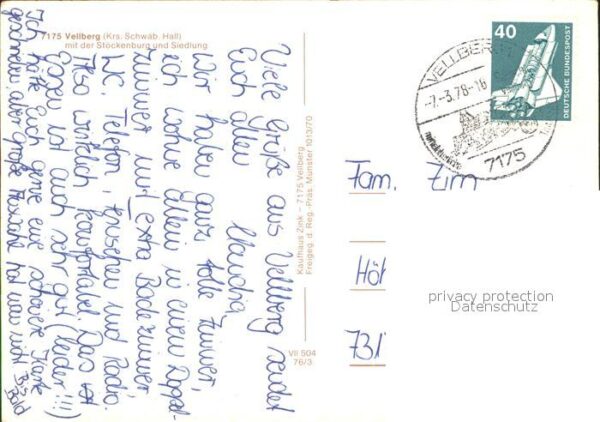 7175 Vellberg (Krs. Schwäb. Hall)
mit der Stöckenburg und Siedlung
Viele Grüße aus Vellberg sendet
Euch allen
Claudia
Wir haben ganz tolle Zimmer,
ich wohne allein in einem Doppel-
zimmer mit extra Badezimmer
WC, Telefon, und Radio.
Also wirklich komfortabel. Das
Essen ist auch sehr gut (leider!!!)
Ich hätte Euch gerne eine schönere Karte
geschrieben, aber große Auswahl hat man nicht. Bis
Bald
Kaufhaus Zink – 7175 Vellberg
Freigeg. d. Reg.-Präs. Münster 1013/70
VII 504
76/3
40
DEUTSCHE BUNDESPOST
VELLBERG
-7.-3.78-16
7175
Fam. Zim
Höh
731
privacy protection
Datenschutz